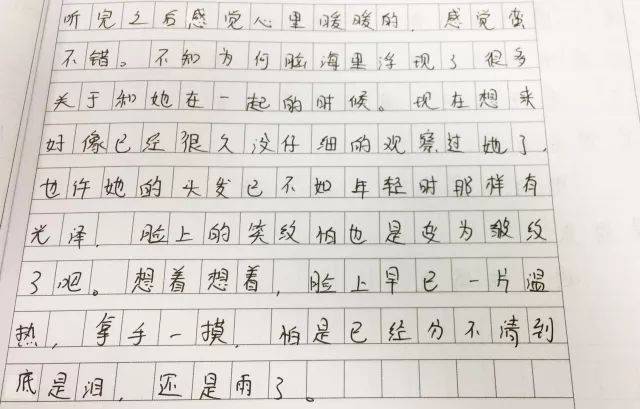 听完之后感觉心里暖暖的，感觉蛮
不错。不知为何脸海里浮现了很多
关于和她在一起的时候。现在想来
好像已经很久没仔细的观察过她了，
也许她的头发已不如年轻时那样有
光泽，脸上的笑纹怕也是变为皱纹
了吧。想着想着，脸上早已一片温
热，拿手一摸，怕是已经分不清到
底是泪，还是雨了。